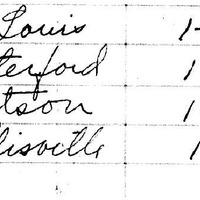 Louis 1-
terford 1
tson 1
lisville 1